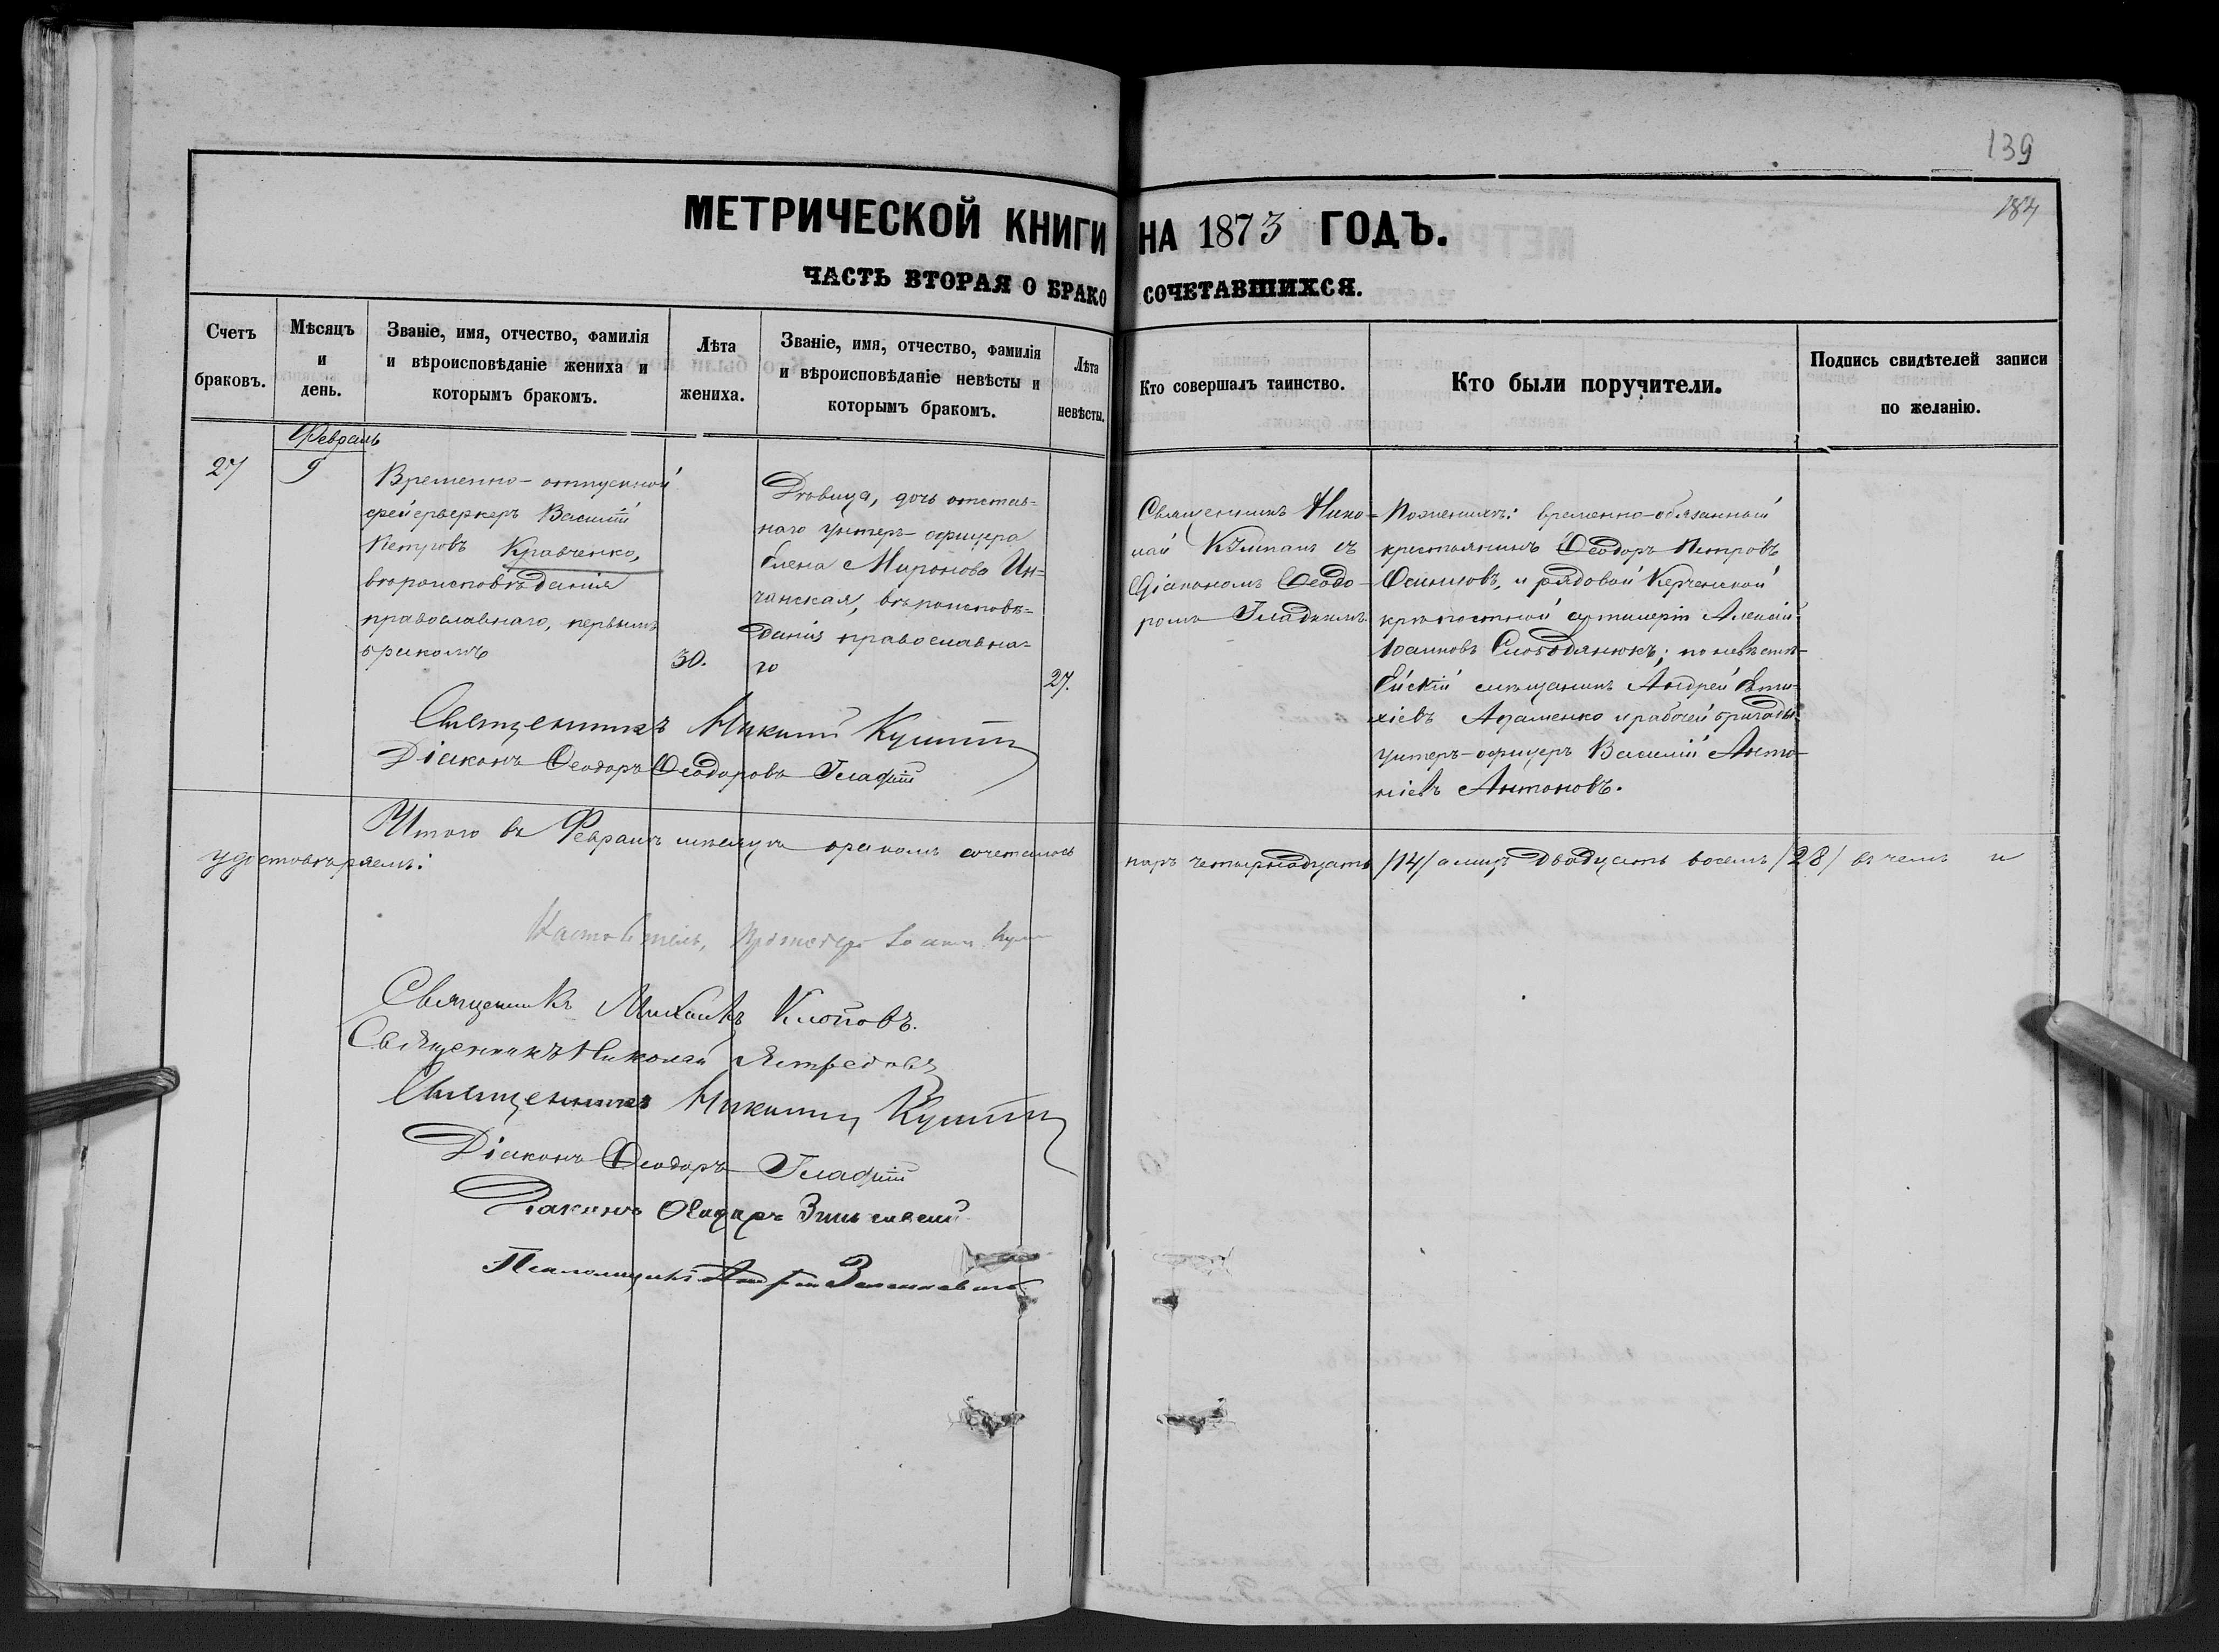 139
184
МЕТРИЧЕСКОЙ КНИГИ НА 1873 ГОДЪ.
ЧАСТЬ ВТОРАЯ О БРАКОСОЧЕТАВШИХСЯ.
Счетъ браковъ.
Мѣсяцъ и день.
Званіе, имя, отчество, фамилія
и вѣроисповѣданіе жениха и
которымъ бракомъ.
Лѣта жениха.
Званіе, имя, отчество, фамилія
и вѣроисповѣданіе невѣсты и
которымъ бракомъ.
Лѣта невѣсты.
Кто совершалъ таинство.
Кто были поручители.
Подпись свидѣтелей записи
по желанію.
Февраль
27
9
Временно-отпускной
фейерверкеръ Василій
Петровъ Кравченко,
вѣроисповѣданія
православнаго, первымъ
бракомъ
30.
Дѣвица, дочь отстав-
наго унтеръ-офицера
Елена Миронова
вѣроисповѣ-
данія православна-
го
27.
Священникъ
съ
Діакономъ Ѳеодо-
ромъ Гладкимъ.
По женихѣ: временно-обязанный
крестьянинъ Ѳеодоръ Петровъ
Осиповъ, и рядовой Керченской
крѣпостной артилеріи Алексѣй
Іоанновъ Слободянюкъ; по невѣстѣ-
мѣщанинъ Андрей
Адаменко и рабочей бригады
унтеръ-офицеръ Василій Анто-
ніевъ Антоновъ.
Священникъ
Діаконъ Ѳеодоръ Ѳеодоровъ Гладкій
Итого въ Февралѣ мѣсяцѣ бракомъ сочеталось паръ четырнадцать /14/ а лицъ двадцать восемь /28/ въ чемъ и
удостовѣряемъ:
Настоятель, Протоіерей Іоаннъ
Священникъ Михаилъ Клоповъ.
Священникъ Николай Ястребовъ
Священникъ
Діаконъ Ѳеодоръ Гладкій
Діаконъ
Псаломщикъ